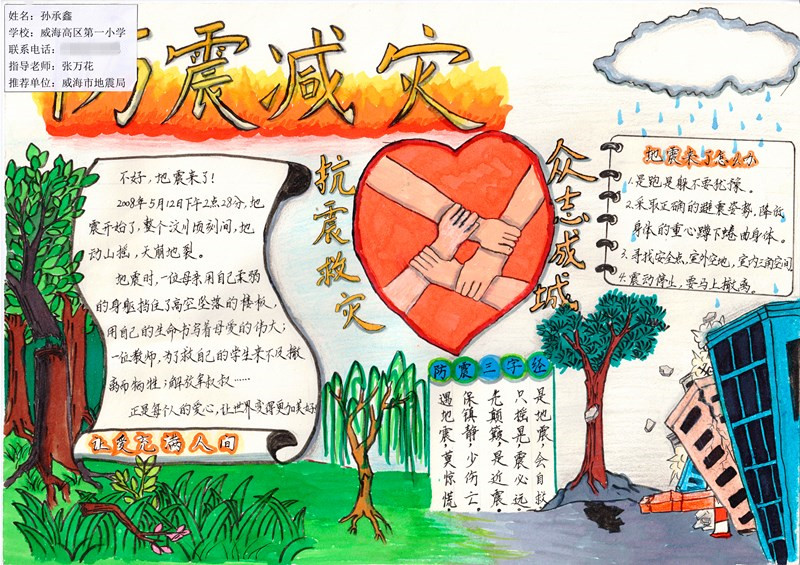 姓名：孙承鑫
学校：威海高区第一小学
联系电话：
指导老师：张万花
推荐单位：威海市地震局
防震减灾
不好，地震来了！
2008年5月12日下午2点28分，地
震开始了，整个汶川顷刻间，地
动山摇，天崩地裂。
地震时，一位母亲用自己柔弱
的身躯挡住了高空坠落的楼板，
用自己的生命书写着母爱的伟大；
一位教师，为了救自己的学生来不及撤
离而牺牲；解放军叔叔……
正是每个人的爱心，让世界变得更加美好！
让爱充满人间
抗震救灾
众志成城
地震来了怎么办
1.是跑是躲不要犹豫。
2.采取正确的避震姿势，降低
身体的重心蹲下蜷曲身体。
3.寻找安全点，室外空地，室内三角空间
4.震动停止，要马上撤离。
防震三字经
是地震，会自救
只摇晃，震必远
先颠簸，是近震
保镇静，少伤亡
遇地震，莫惊慌